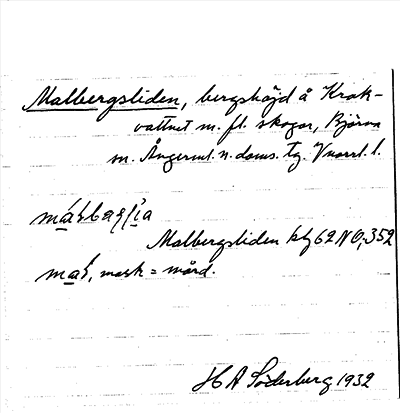 Malbergsliden, bergshöjd å Krok-
vattnet m. fl. skogar, Björna
sn. Ångerml. n. doms. tg. Vnorrl. l.
Malbergsliden kbl 62 NO, 352
mask = mård.
H A Söderberg 1932